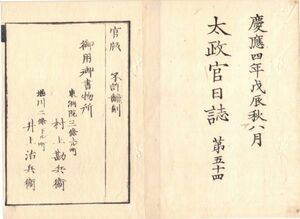 慶應四年戊辰秋八月
太政官日誌 第五十四
官版 不許翻刻
御用御書物所
東洞院三條上ル町
村上勘兵衛
堀川二條下ル町
井上治兵衛